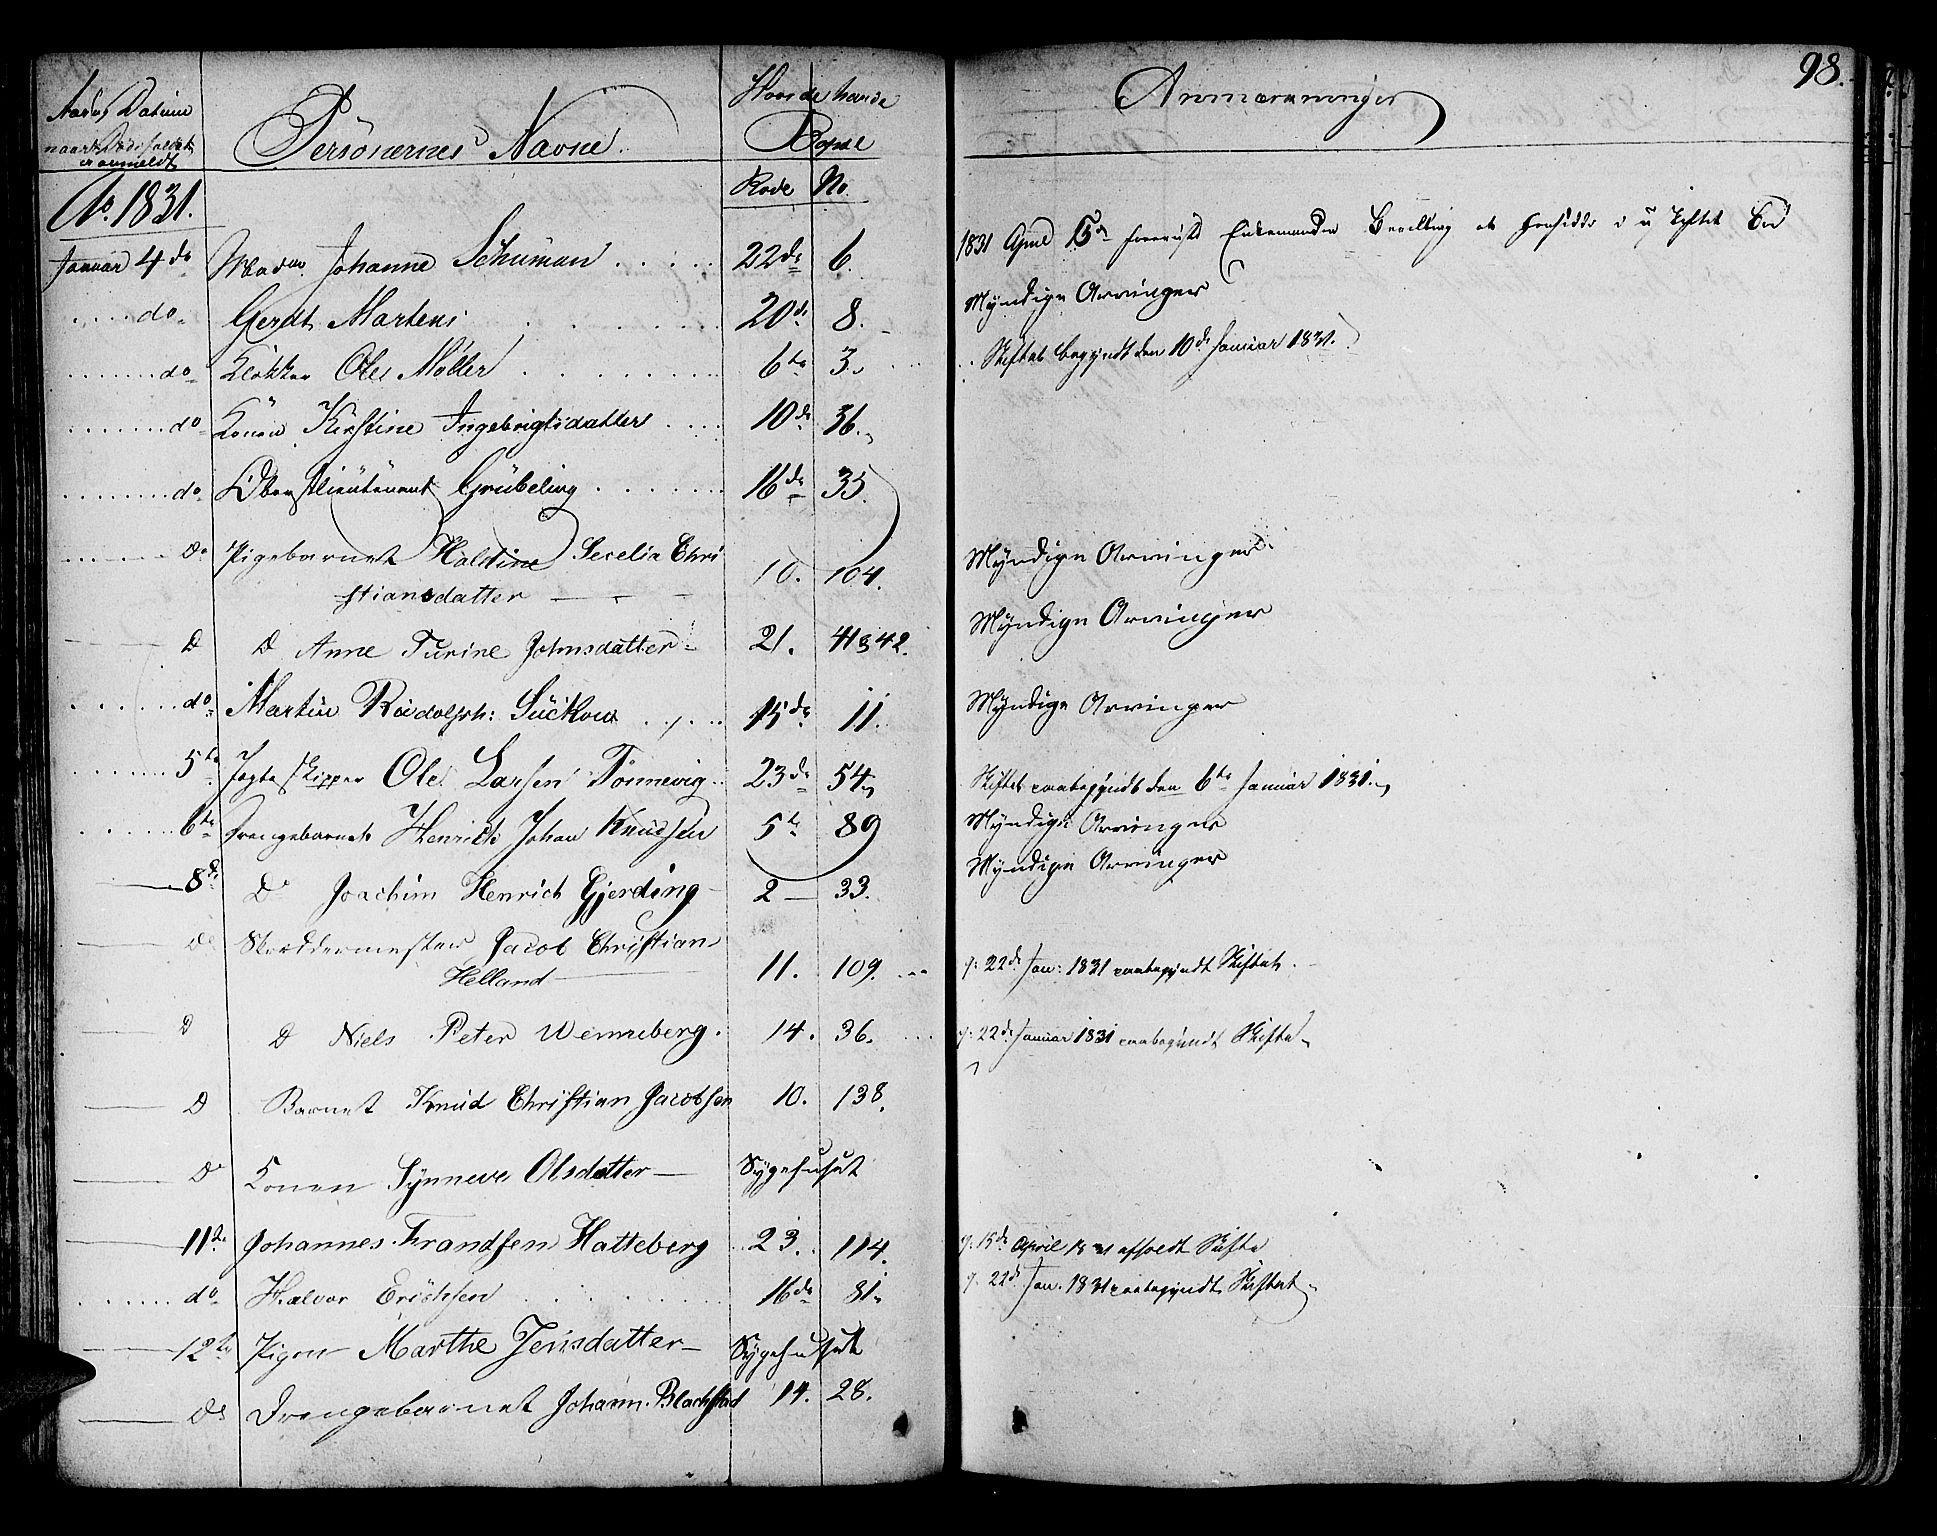 98.
Aar og Datum
naar Dødsfaldet
er anmeldt
Personernes Navne.
Hvor de havde
Bopæl
Rode No.
Anmærkninger
Ao. 1831.
Januar 4de Madm Johanne Schuman 22de 6. 1831 April 15de foreviist Enkemanden Bevilling at hensidde i u skiftet Bo
do Gerdt Martens 20de 8. Myndige Arvinger
do Klokker Ole Møller 6te 3. Skiftet begyndt den 10de Januar 1831.
do Konen Kirstine Ingebrigtsdatter 10de 36.
do Oberstlieutenant Grübeling 16de 35.
Do Pigebarnet Haldine Secelia Chri
stiansdatter 10. 104. Myndige Arvinger
D D Anne Turine Johnsdatter 21. 41 & 42. Myndige Arvinger
do Martin Rudolph: Suckow 15de 11. Myndige Arvinger
5te Jagteskipper Ole Larsen Tønnevig 23de 54. Skiftet paabegyndt den 6te Januar 1831.
6te Drengebarnet Henrich Johan Knudsen 5te 89 Myndige Arvinger
8de Do Joachim Henrich Gjerding 2 33. Myndige Arvinger
Do Skreddermester Jacob Christian
Helland 11. 109. 22de Jan: 1831 paabegyndt Skiftet
D D Niels Peter Wenneberg. 14. 36. 22de Januar 1831 paabegyndt Skifte
D Barnet Knud Christian Jacobsen 10. 138.
Do Konen Synneve Olsdatter Sygehuset
11te Johannes Frandsen Hatteberg 23. 114. 15de April 1831 afholdt Skifte
do Halvor Erichsen 16de 81. 22de Jan. 1831 paabegyndt Skiftet
12te Pigen Marthe Jensdatter Sygehuset
Do Drengebarnet Johann Blachstad 14. 28.